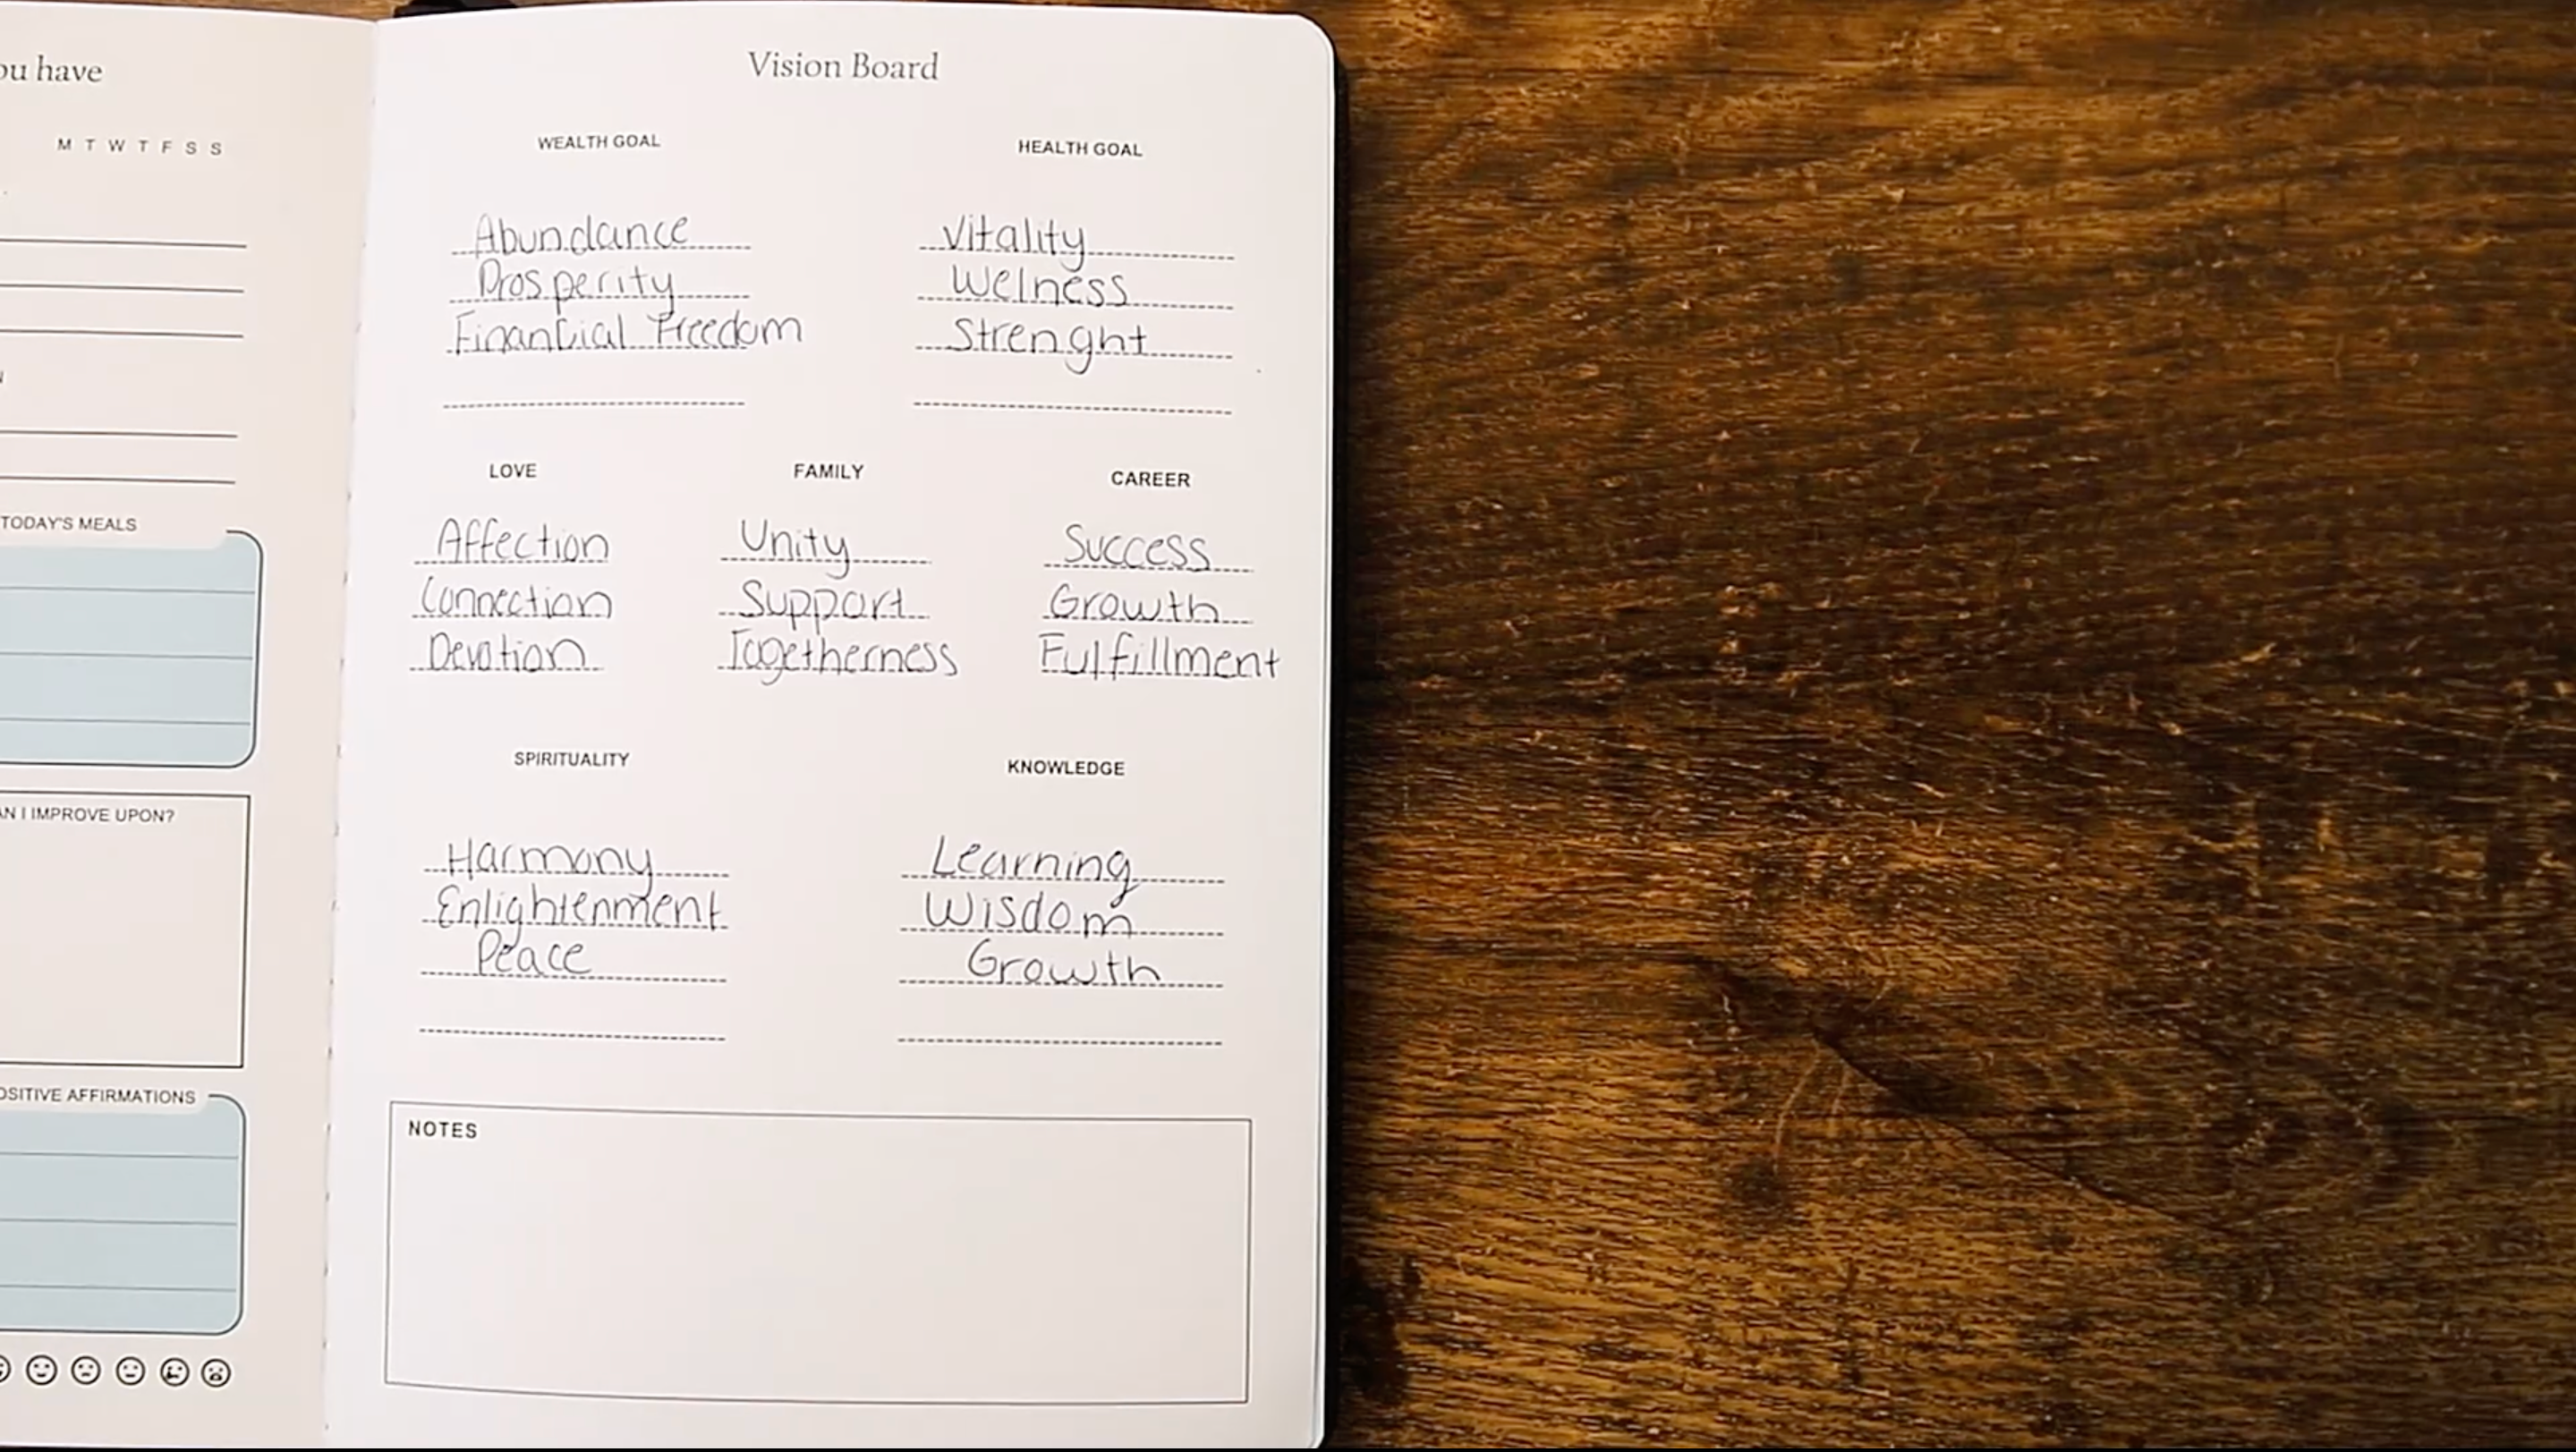 ou have
M T W T F S S
TODAY'S MEALS
AN I IMPROVE UPON?
OSITIVE AFFIRMATIONS
Vision Board
WEALTH GOAL
Abundance
Prosperity
Financial Freedom
HEALTH GOAL
Vitality
Welness
Strenght
LOVE
Affection
Connection
Devotion
FAMILY
Unity
Support
Togetherness
CAREER
Success
Growth
Fulfillment
SPIRITUALITY
Harmony
Enlightenment
Peace
KNOWLEDGE
Learning
Wisdom
Growth
NOTES